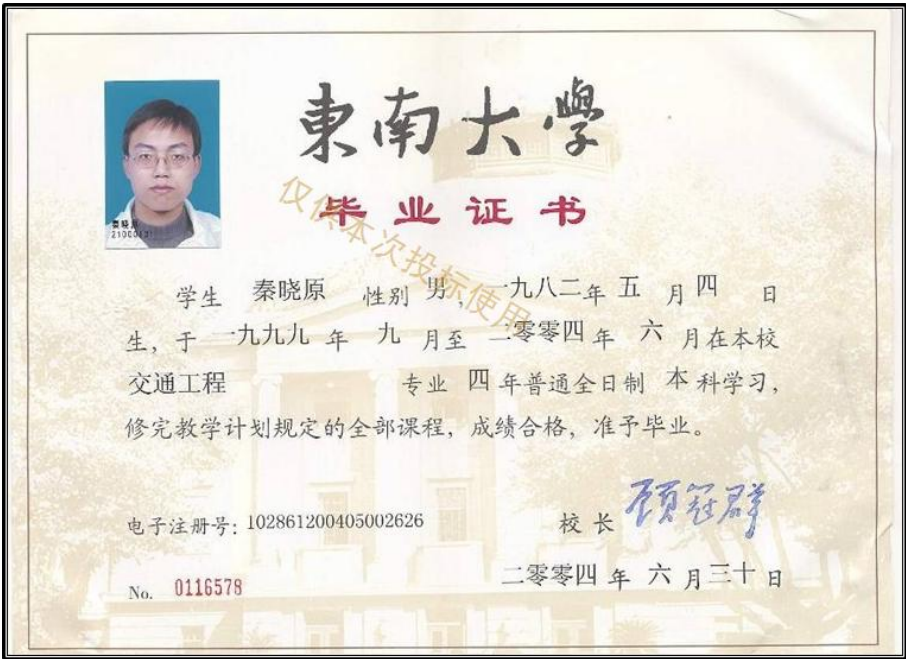 東南大學
毕业证书
仅供本次投标使用
秦晓原
学生 秦晓原 性别 男 一九八二年 五 月 四 日
生，于 一九九九 年 九 月至 二零零四 年 六 月在本校
交通工程 专业 四 年普通全日制 本 科学习，
修完教学计划规定的全部课程，成绩合格，准予毕业。
电子注册号：102861200405002626
校 长 顾冠群
No. 0116578
二零零四 年 六 月 三十 日